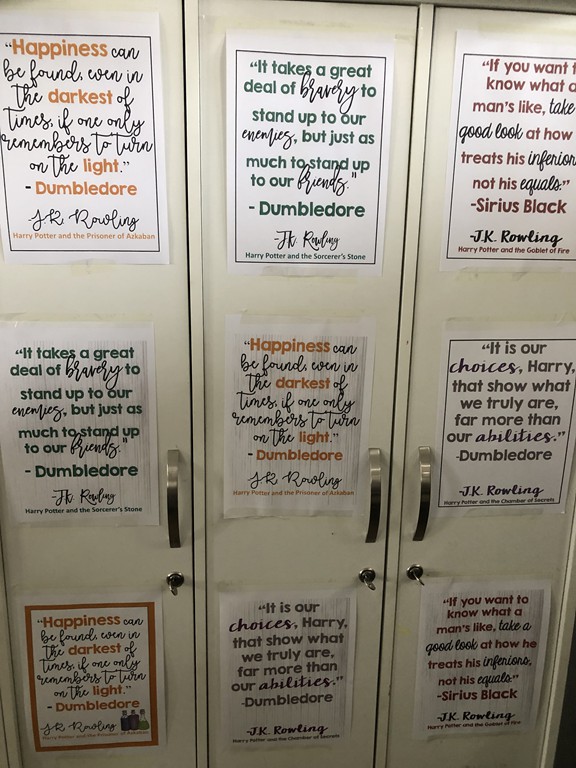 “Happiness can
be found, even in
the darkest of
times, if one only
remembers to turn
on the light.”
- Dumbledore
-J.K. Rowling
Harry Potter and the Prisoner of Azkaban
“It takes a great
deal of bravery to
stand up to our
enemies, but just as
much to stand up
to our friends."
- Dumbledore
-J.K. Rowling
Harry Potter and the Sorcerer's Stone
“If you want t
know what a
man’s like, take
good look at how
treats his inferior
not his equals.”
-Sirius Black
-J.K. Rowling
Harry Potter and the Goblet of Fire
“It takes a great
deal of bravery to
stand up to our
enemies, but just as
much to stand up
to our friends."
- Dumbledore
-J.K. Rowling
Harry Potter and the Sorcerer's Stone
“Happiness can
be found, even in
the darkest of
times, if one only
remembers to turn
on the light.”
- Dumbledore
-J.K. Rowling
Harry Potter and the Prisoner of Azkaban
“It is our
choices, Harry,
that show what
we truly are,
far more than
our abilities.”
-Dumbledore
-J.K. Rowling
Harry Potter and the Chamber of Secrets
“Happiness can
be found, even in
the darkest of
times, if one only
remembers to turn
on the light.”
- Dumbledore
-J.K. Rowling
Harry Potter and the Prisoner of Azkaban
“It is our
choices, Harry,
that show what
we truly are,
far more than
our abilities.”
-Dumbledore
-J.K. Rowling
Harry Potter and the Chamber of Secrets
“If you want to
know what a
man’s like, take a
good look at how he
treats his inferiors,
not his equals.”
-Sirius Black
-J.K. Rowling
Harry Potter and the Goblet of Fire